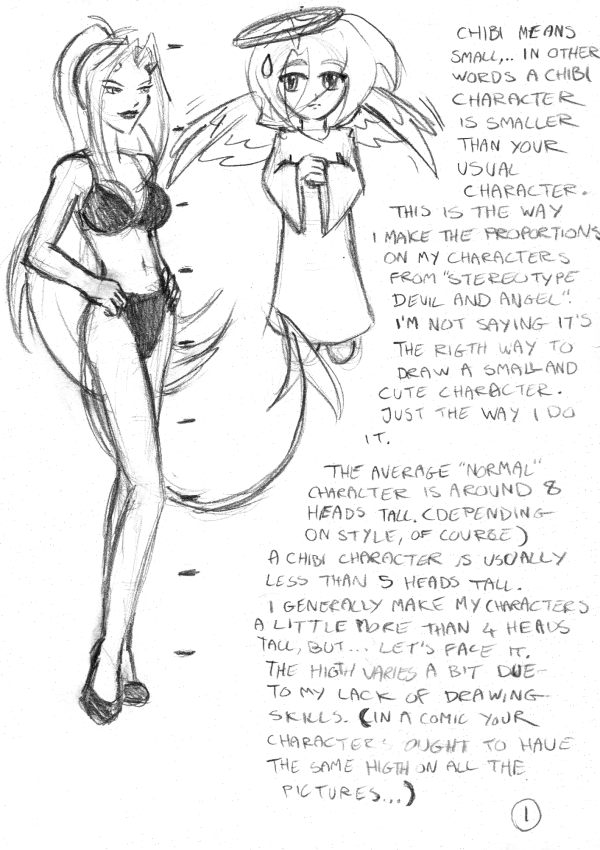 CHIBI MEANS
SMALL,.. IN OTHER
WORDS A CHIBI
CHARACTER
IS SMALLER
THAN YOUR
USUAL
CHARACTER.
THIS IS THE WAY
I MAKE THE PROPORTIONS
ON MY CHARACTERS
FROM "STEREOTYPE
DEVIL AND ANGEL".
I'M NOT SAYING IT'S
THE RIGTH WAY TO
DRAW A SMALL AND
CUTE CHARACTER.
JUST THE WAY I DO
IT.
THE AVERAGE "NORMAL"
CHARACTER IS AROUND 8
HEADS TALL. (DEPENDING
ON STYLE, OF COURSE)
A CHIBI CHARACTER IS USUALLY
LESS THAN 5 HEADS TALL.
I GENERALLY MAKE MY CHARACTERS
A LITTLE MORE THAN 4 HEADS
TALL, BUT... LET'S FACE IT.
THE HIGTH VARIES A BIT DUE
TO MY LACK OF DRAWING
SKILLS. (IN A COMIC YOUR
CHARACTERS OUGHT TO HAVE
THE SAME HIGTH ON ALL THE
PICTURES...)
1